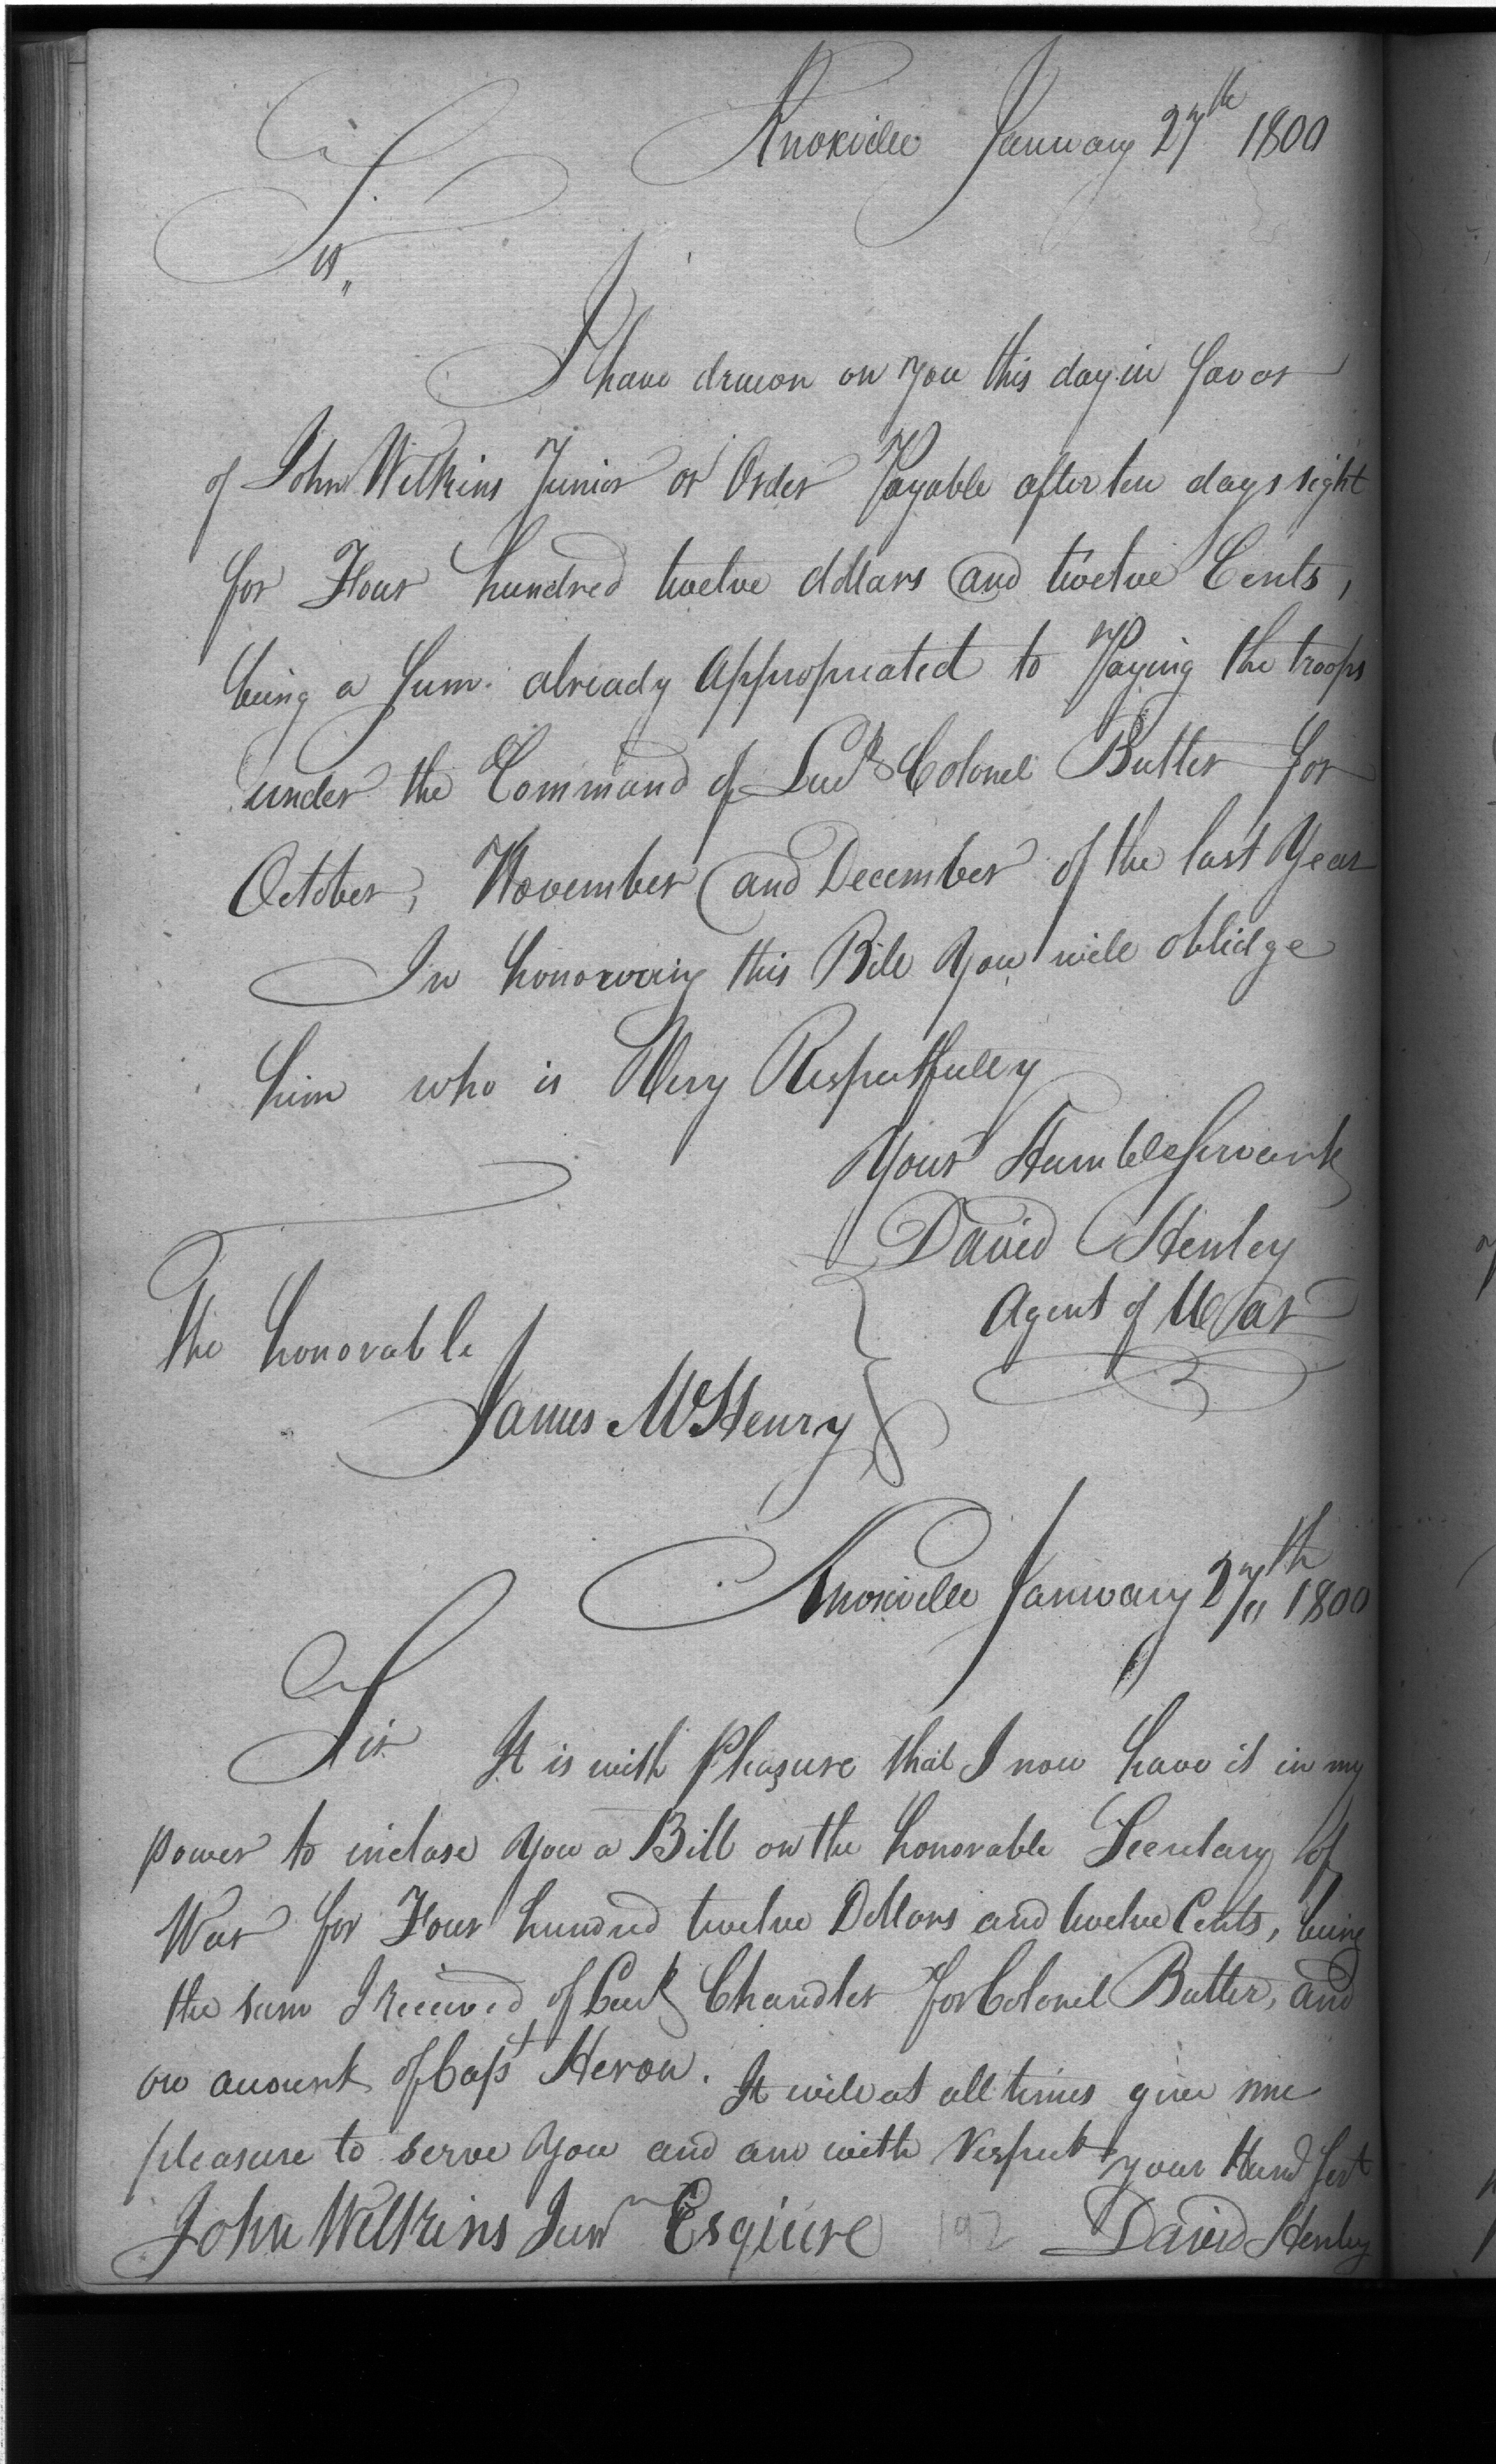 Knoxville January 27th 1800
Sir,,
I have drawn on you this day in favor
of John Wilkins Junior or Order Payable after ten days sight
for Four hundred twelve dollars and twelve Cents,
being a Sum. already Appropriated to Paying the troops
under the Command of Lieut Colonel Butler for
October, November and December of the last Year
In honorring this Bill You will oblidge
him who is Very Respectfully
Your Humble Servant
David Henley
Agent of War
The honorable
James McHenry
Knoxville January 27th 1800
Sir It is with Pleasure that I now have it in my
power to inclose You a Bill on the honorable Secretary of
War for Four hundred twelve Dollars and twelve Cents, being
the sum I received of Lieut Chandler for Colonel Butler, and
on account of Capt Heron. It will at all times give me
pleasure to serve You and am with respect your Humb Sert
John Wilkins Junr Esquire 192 David Henley